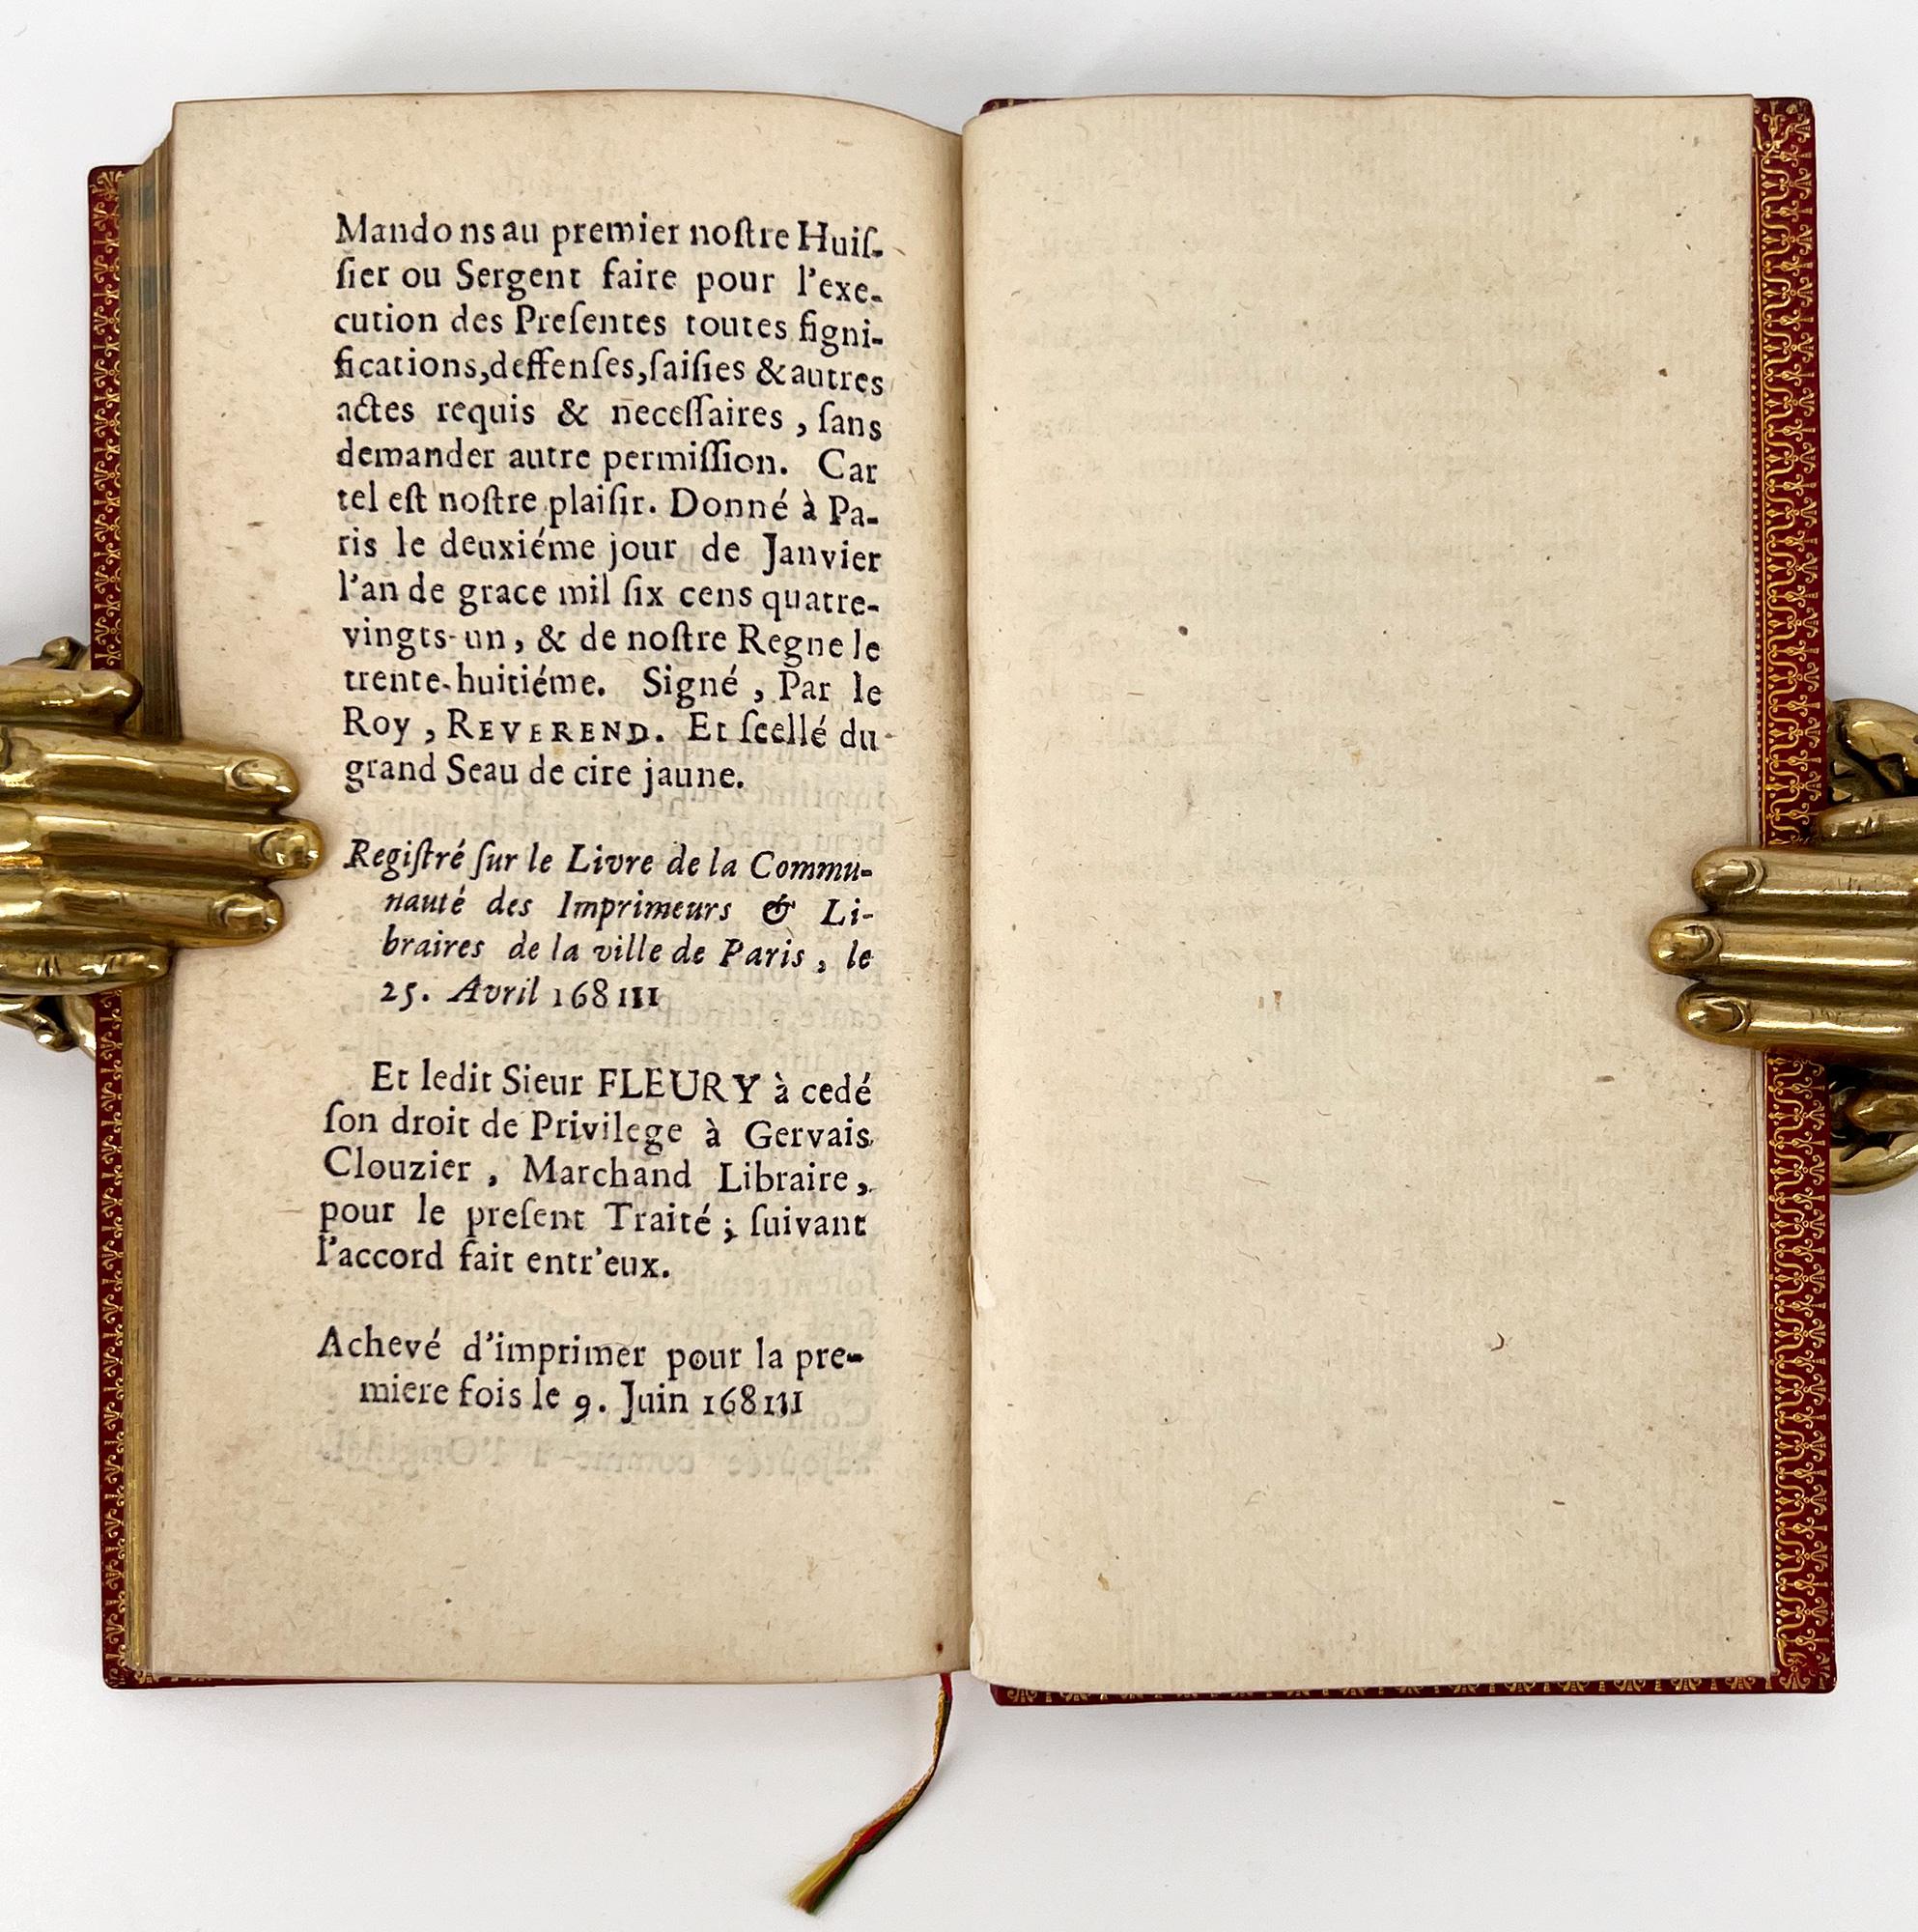 Mandons au premier noſtre Huiſ-
ſier ou Sergent faire pour l'exe-
cution des Preſentes toutes ſigni-
fications,deffenſes,ſaiſies & autres
actes requis & neceſſaires , ſans
demander autre permiſſion. Car
tel eſt noſtre plaiſir. Donné à Pa-
ris le deuxiéme jour de Janvier
l'an de grace mil ſix cens quatre-
vingts-un, & de noſtre Regne le
trente-huitiéme. Signé , Par le
Roy , REVEREND. Et ſcellé du
grand Seau de cire jaune.
Regiſtré ſur le Livre de la Commu-
nauté des Imprimeurs & Li-
braires de la ville de Paris , le
25. Avril 168III
Et ledit Sieur FLEURY à cedé
ſon droit de Privilege à Gervais
Clouzier , Marchand Libraire,
pour le preſent Traité ; ſuivant
l'accord fait entr'eux.
Achevé d'imprimer pour la pre-
miere fois le 9. Juin 168III